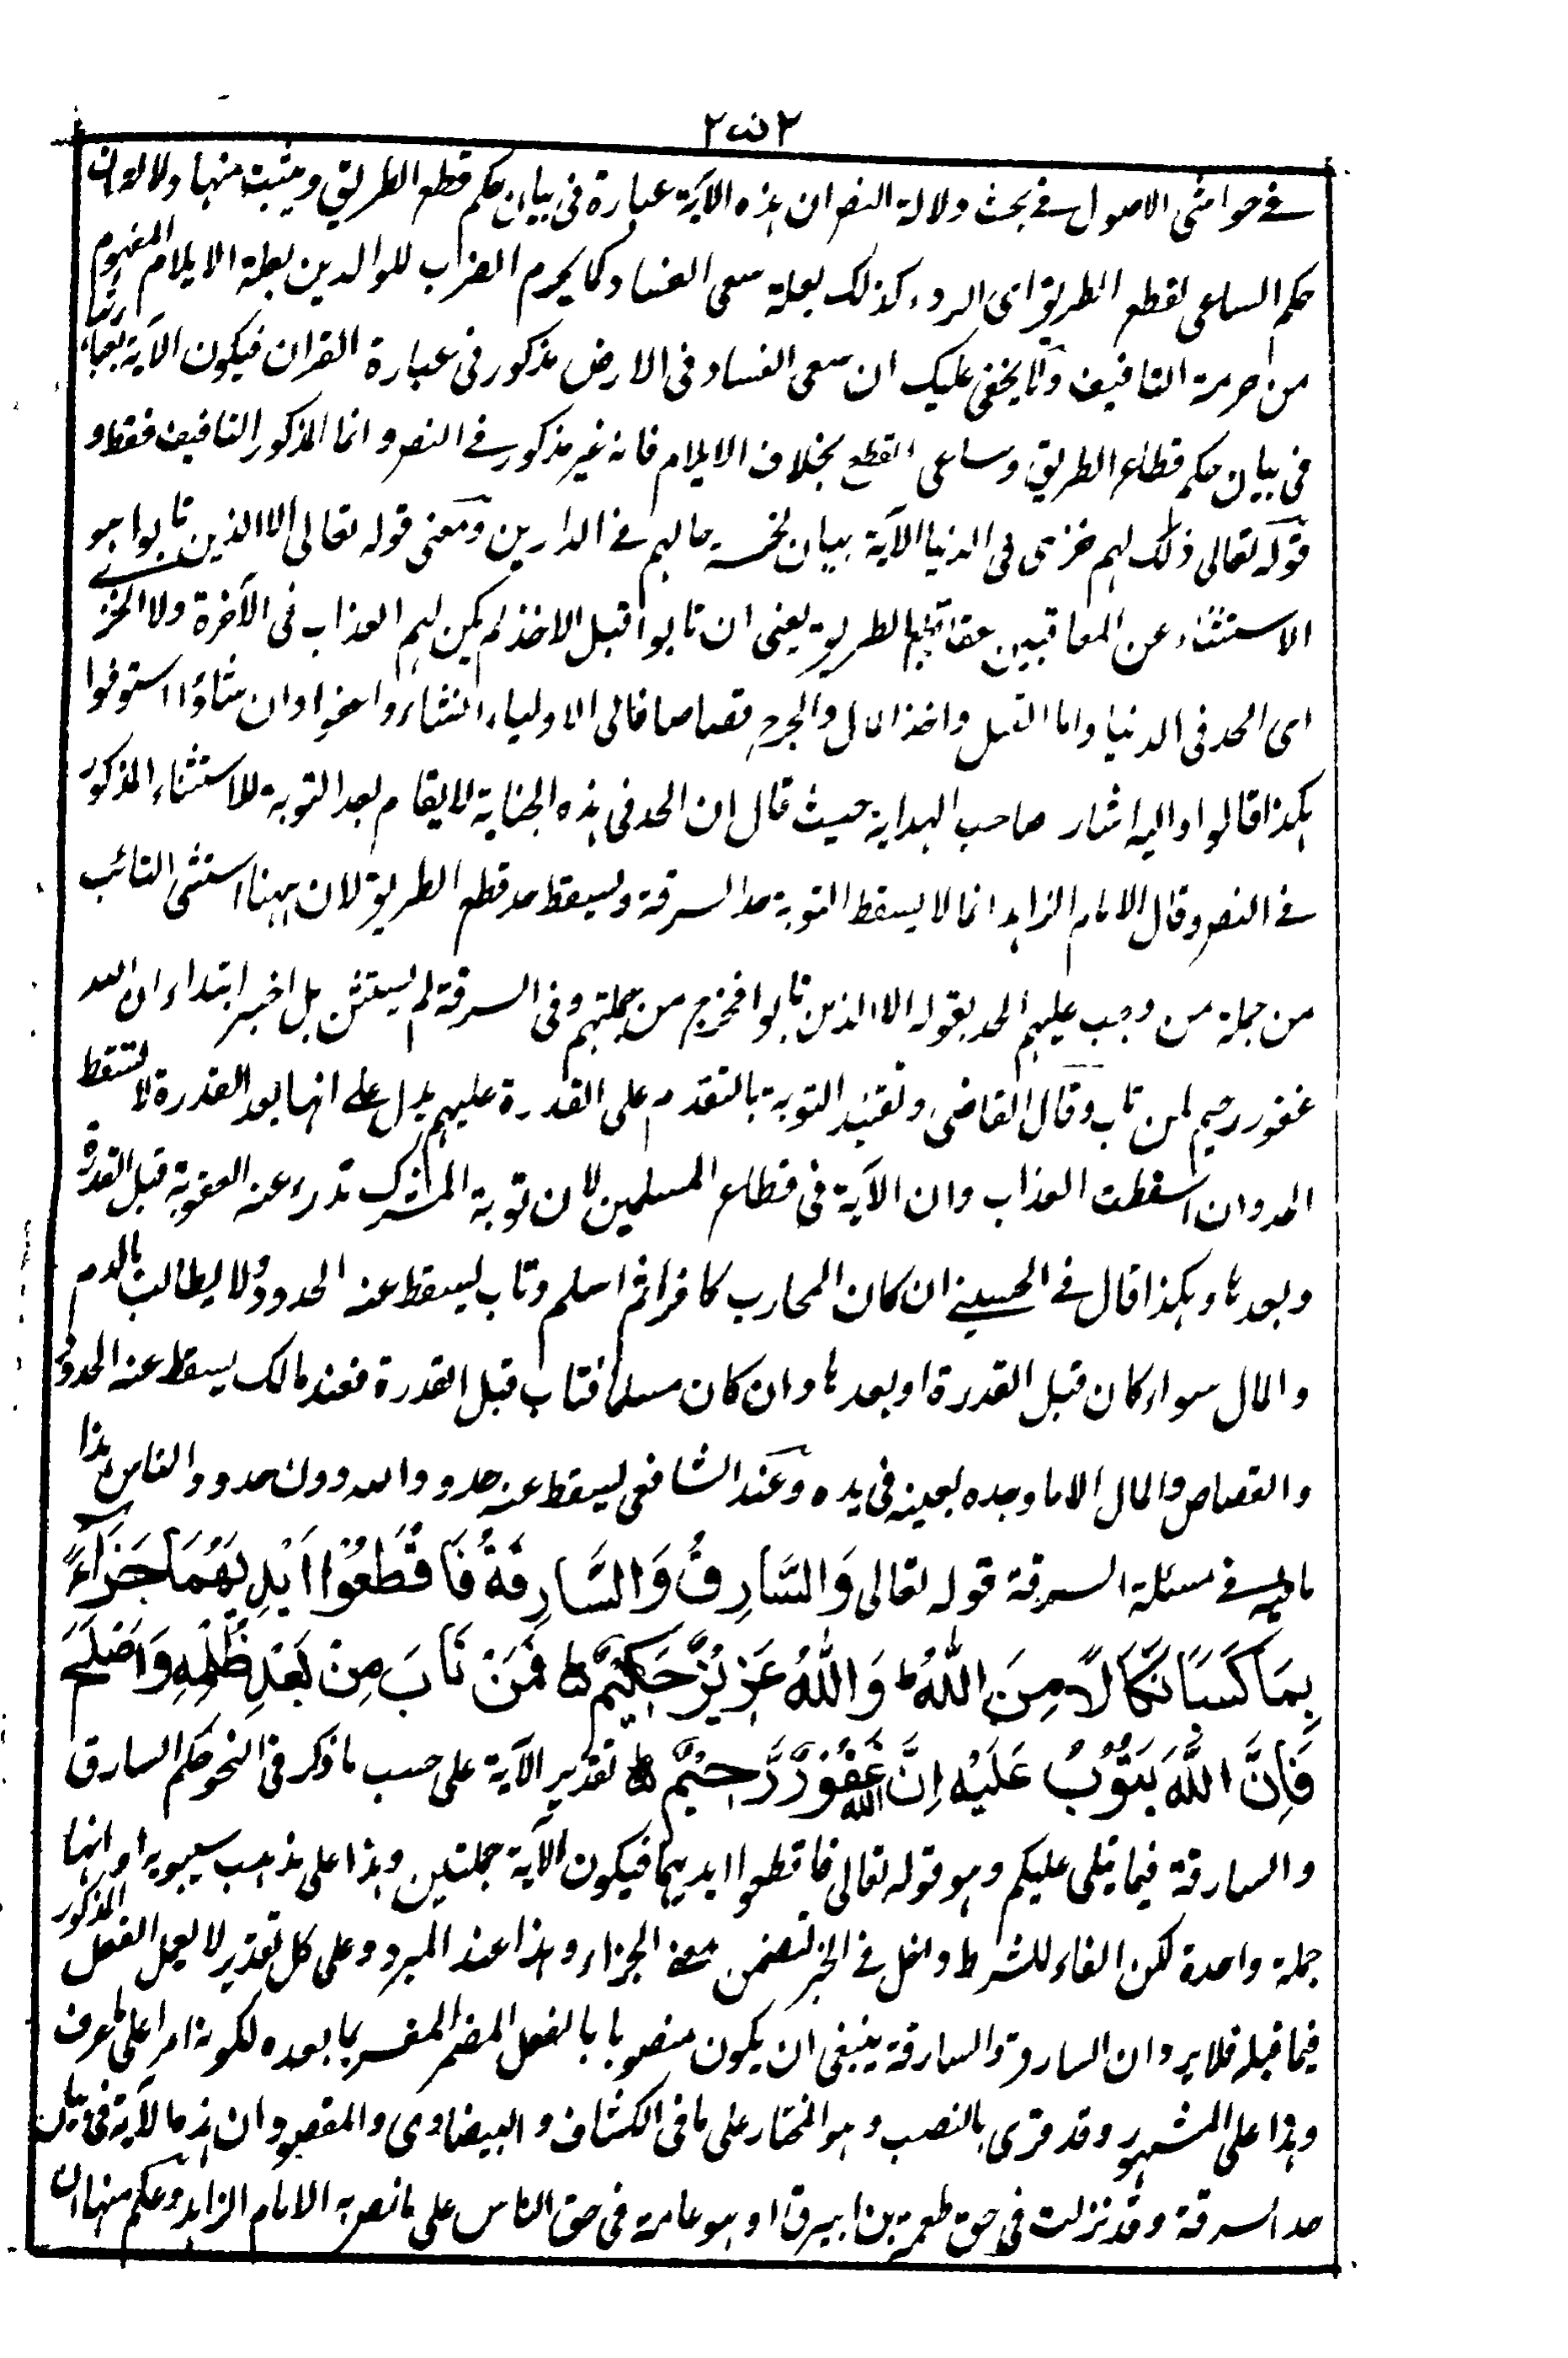 ٢٥٢
في حواشى الاصول في بحث دلالة النص ان هذه الآية عبارة فى بيان حكم قطع الطريق ويثبت منها دلالة ان
حكم الساعى لقطع الطريق اى الردء كذلك بعلة سعى الفساد كما يحرم الضراب للوالدين بعلة الايلام المفهوم
من حرمة التافيف ولا يخفى عليك ان سعى الفساد فى الارض مذكور فى عبارة القران فيكون الآية بعبارتها
فى بيان حكم قطاع الطريق وساعى القطع بخلاف الايلام فانه غير مذكور في النص وانما المذكور التافيف فقط و
قوله تعالى ذلك لهم خزى فى الدنيا الآية بيان لخسة حالهم في الدارين ومعنى قوله تعالى الا الذين تابوا هو
الاستثناء عن المعاقبين عقاب قطع الطريق يعنى ان تابوا قبل الاخذ لم يكن لهم العذاب فى الآخرة ولا الخزي
اى الحد فى الدنيا واما القتل واخذ المال والجرح قصاصا فالى الاولياء ان شاءوا عفوا وان شاؤا استوفوا
هكذا قالوا واليه اشار صاحب الهداية حيث قال ان الحد فى هذه الجناية لا يقام بعد التوبة للاستثناء المذكور
في النص وقال الامام الزاهد انما لا يسقط التوبة حد السرقة ويسقط حد قطع الطريق لان ههنا استثنى التائب
من جملة من وجب عليهم الحد بقوله الا الذين تابوا فخرج من جملتهم وفى السرقة لم يستثن بل اخبر ابتداء ان الله
غفور رحيم لمن تاب وقال القاضى وتقييد التوبة بالتقدم على القدرة عليهم يدل على انها بعد القدرة لا تسقط
الحد وان اسقطت العذاب وان الآية فى قطاع المسلمين لان توبة المشرك تدرء عنه العقوبة قبل القدرة
وبعدها وهكذا قال في الحسيني ان كان المحارب كافرا ثم اسلم وتاب يسقط عنه الحدود ولا يطالب بالدم
والمال سواء كان قبل القدرة او بعدها وان كان مسلما فتاب قبل القدرة فعند مالك يسقط عنه الحدود
والقصاص والمال الا ما وجده بعينه فى يده وعند الشافعى يسقط عنه حدود الله دون حدود الناس هذا
ما فيه في مسئلة السرقة قوله تعالى وَالسَّارِقُ وَالسَّارِقَةُ فَاقْطَعُوْا اَيْدِيَهُمَا جَزَآءً
بِمَا كَسَبَا نَكَالًا مِنَ اللّٰهِ ط وَاللّٰهُ عَزِيْزٌ حَكِيْمٌ ط فَمَنْ تَابَ مِنْ بَعْدِ ظُلْمِهِ وَاَصْلَحَ
فَاِنَّ اللّٰهَ يَتُوْبُ عَلَيْهِ اِنَّ اللّٰهَ غَفُوْرٌ رَّحِيْمٌ ط تقدير الآية على حسب ما ذكر فى النحو حكم السارق
والسارقة فيما يتلى عليكم وهو قوله تعالى فاقطعوا ايديهما فيكون الآية جملتين وهذا على مذهب سيبويه او انها
جملة واحدة لكن الفاء للشرط دخل في الخبر لتضمن معنى الجزاء وهذا عند المبرد وعلى كل تقدير لا يعمل الفعل المذكور
فيما قبله فلا يرد ان السارق والسارقة ينبغى ان يكون منصوبا بالفعل المضمر المفسر بما بعده لكونه امرا على ما عرف
وهذا على المشهور وقد قرى بالنصب وهو المختار على ما فى الكشاف والبيضاوى والمقصود ان هذه الآية فى بيان
حد السرقة وقد نزلت في حق طعمة بن ابيرق او هو عامة فى حق الناس على ما نص به الامام الزاهد وعلم منها ان